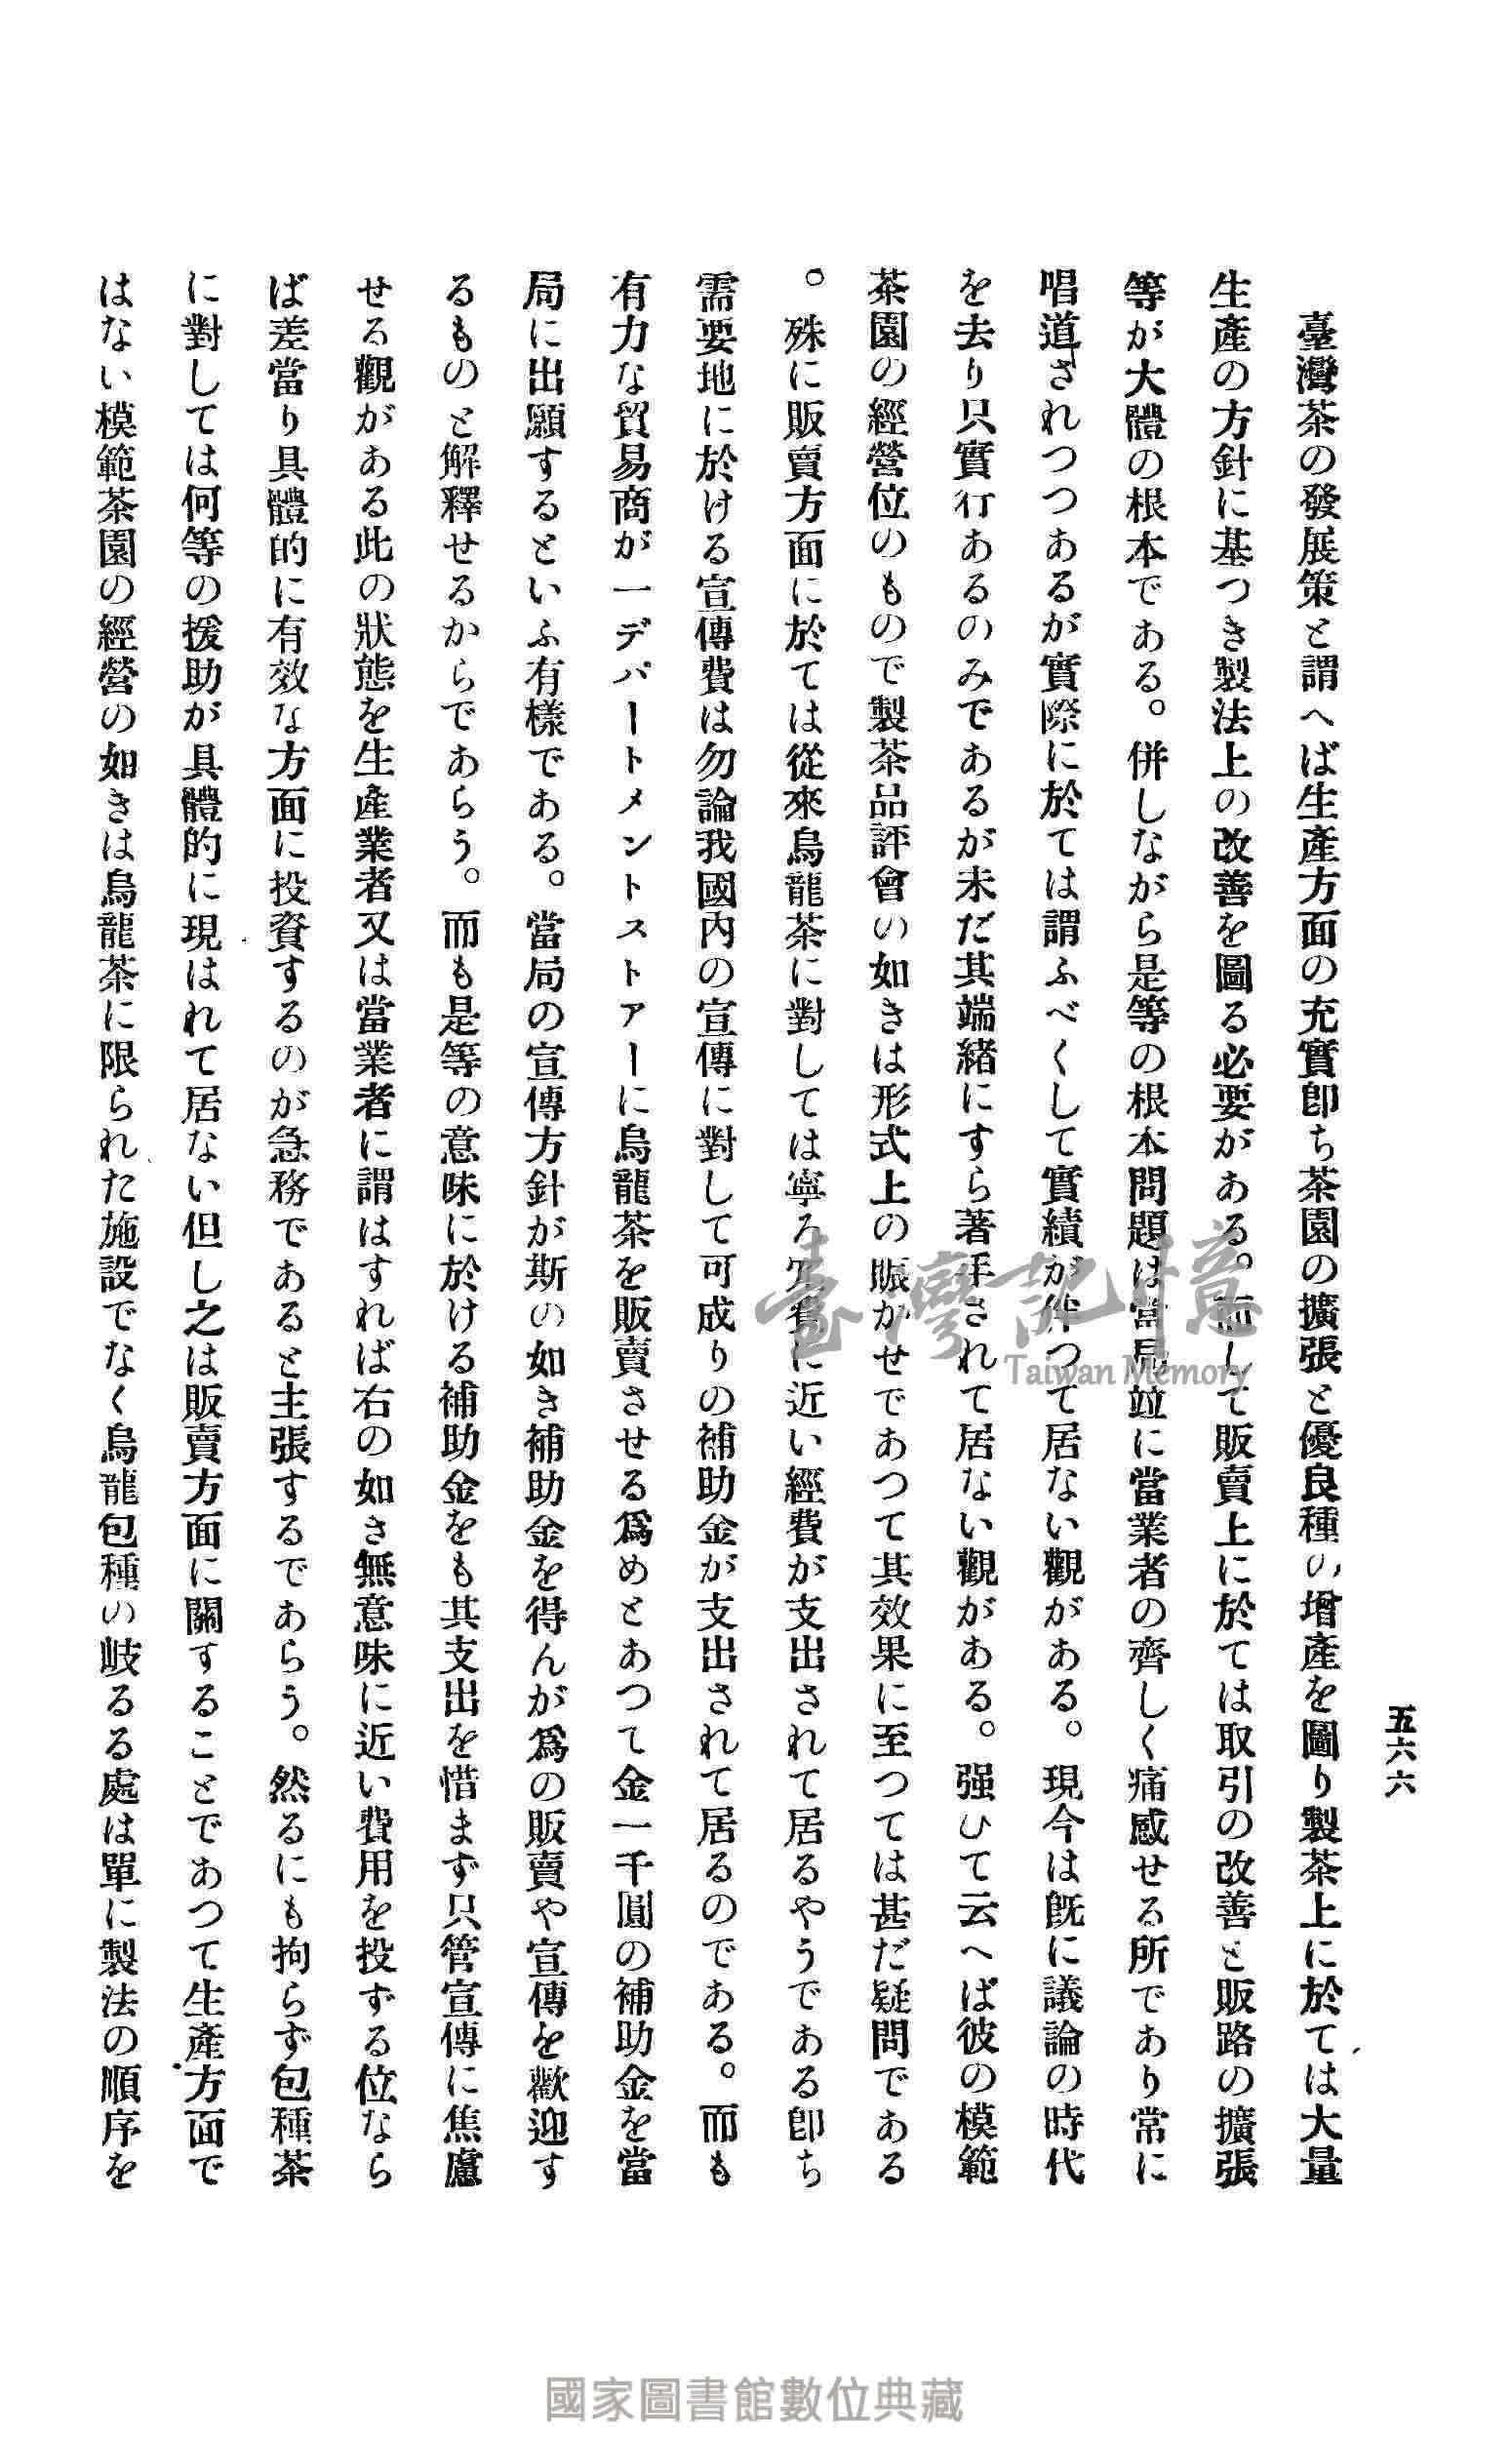 五六六
臺灣茶の發展策と謂へば生產方面の充實卽ち茶園の擴張と優良種の增產を圖り製茶上に於ては大量
生產の方針に基つき製法上の改善を圖る必要がある。而して販賣上に於ては取引の改善と販路の擴張
等が大體の根本である。併しながら是等の根本問題は當局竝に當業者の齊しく痛感せる所であり常に
唱道されつつあるが實際に於ては謂ふべくして實績が伴つて居ない觀がある。現今は既に議論の時代
を去り只實行あるのみであるが未だ其端緒にすら著手されて居ない觀がある。强ひて云へば彼の模範
茶園の經營位のもので製茶品評會の如きは形式上の賑かせであつて其效果に至つては甚だ疑問である
。殊に販賣方面に於ては從來烏龍茶に對しては寧ろ冗費に近い經費が支出されて居るやうである卽ち
需要地に於ける宣傳費は勿論我國內の宣傳に對して可成りの補助金が支出されて居るのである。而も
有力な貿易商が一デパートメントストアーに烏龍茶を販賣させる爲めとあつて金一千圓の補助金を當
局に出願するといふ有樣である。當局の宣傳方針が斯の如き補助金を得んが爲の販賣や宣傳を歡迎す
るものと解釋せるからであらう。而も是等の意味に於ける補助金をも其支出を惜まず只管宣傳に焦慮
せる觀がある此の狀態を生產業者又は當業者に謂はすれば右の如き無意味に近い費用を投ずる位なら
ば差當り具體的に有效な方面に投資するのが急務であると主張するであらう。然るにも拘らず包種茶
に對しては何等の援助が具體的に現はれて居ない但し之は販賣方面に關することであつて生產方面で
はない模範茶園の經營の如きは烏龍茶に限られた施設でなく烏龍包種の岐るる處は單に製法の順序を
臺灣記憶
Taiwan Memory
國家圖書館數位典藏